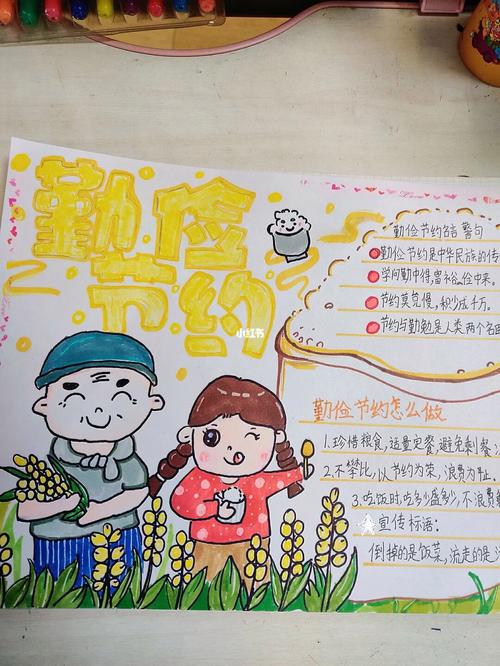 勤俭
节约
小红书
勤俭节约名言警句
勤俭节约是中华民族的传
学问勤中得,富裕俭中来。
节约莫怠慢,积少成千万。
节约与勤勉是人类两个名医
勤俭节约怎么做
1.珍惜粮食,适量定餐,避免剩餐,
2.不攀比,以节约为荣,浪费为耻。
3.吃饭时,吃多少盛多少,不浪费
宣传标语:
倒掉的是饭菜,流走的是